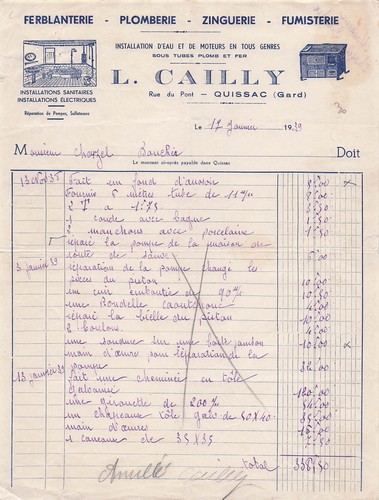 FERBLANTERIE - PLOMBERIE - ZINGUERIE - FUMISTERIE
INSTALLATION D'EAU ET DE MOTEURS EN TOUS GENRES
SOUS TUBES PLOMB ET FER
L. CAILLY
Rue du Pont - QUISSAC (Gard)
INSTALLATIONS SANITAIRES
INSTALLATIONS ÉLECTRIQUES
Réparation de Pompes, Sulfateuses
30
Le 17 Janvier 1939
Monsieur Boucher Doit
Le montant est payable dans Quissac
fait un fond d'arrosoir 8,00
fourni 5 mètres tube de 11
2 T à 1.75 3,50
1 coude avec bague
2 manchons avec porcelaine 1,50
réparé la pompe de la maison de
route de sauve
3 janvier 39 réparation de la pompe changé les
pièces du piston 10,00
un cuir embouti de 90
une Rondelle caoutchouc
réparé la bielle du piston 10,00
2 boulons 4,00
une soudure sur une boîte jambon 10,00
main d'œuvre pour réparation de la
pompe 32,00
13 janvier 39 fait une cheminée en tôle
galvanisé 120,00
une girouette de 200 54,00
un chapeau tôle galv de 50 x 40
main d'œuvre
1 carreau de 35 x 35
total 338,50
Annulée Cailly